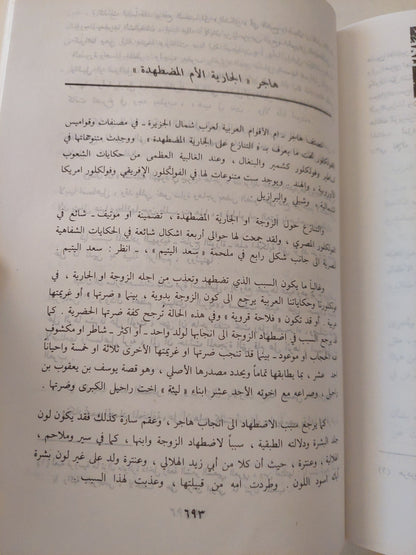 هاجر « الجارية الأم المضطهدة »
تصنف هاجر ـ أم الأقوام العربية لعرب شمال الجزيرة ـ في مصنفات وقواميس
الفولكلور تحت ما يعرف بـ « التنازع على الجارية المضطهدة » ، ووجدت متنوعاتها في
وفولكلور كشمير والبنغال ، وعند الغالبية العظمى من حكايات الشعوب
والهند . ويوجد ست متنوعات لها في الفولكلور الإفريقي وفولكلور امريكا
وشيلي والبرازيل
والتنازع حول الزوجة أو الجارية المضطهدة ، تضمينة أو موتيف ـ شائع في
الفولكلور المصري ، ولقد جمعت لها حوالي أربعة اشكال شائعة في الحكايات الشفاهية
المصرية الى جانب شكل رابع في ملحمة « سعد اليتيم » ـ انظر : سعد اليتيم
وغالباً ما يكون السبب الذي تضطهد وتعذب من اجله الزوجة أو الجارية ، في
فولكلورنا وحكاياتنا العربية يرجع الى كون الزوجة بدوية ، بينما « ضرتها » أو غريمتها
أو قد تكون « فلاحة قروية » وفي هذه الحالة ترجح كفة ضرتها الحضرية . كما
يرجع السبب في اضطهاد الزوجة الى انجابها لولد واحد ـ أو أكثر ـ شاطر او مكشوف
عنه الحجاب أو موعود ـ بينما قد تنجب ضرتها او غريمتها الأخرى ثلاثة او خمسة واحياناً
احد عشر ، بما يطابقها تماماً ويحدد مصدرها الأصلي ، وهو قصة يوسف بن يعقوب بن
وصراعه مع اخوته الأحد عشر ابناء « ليئة » اخت راحيل الكبرى وضرتها .
كما يرجع سبب الاضطهاد الى انجاب هاجر ، وعقم سارة كذلك فقد يكون لون
جلد البشرة ودلالته الطبقية ، سبباً لاضطهاد الزوجة وابنها ، كما في سير وملاحم ،
الهلالي ، وعنترة ، حيث أن كلا من أبي زيد الهلالي ، وعنترة ولد على غير لون بشرة
أباه أسود اللون . وطردت أمه من قبيلتها ، وعذبت لهذا السبب .
٦٩٣